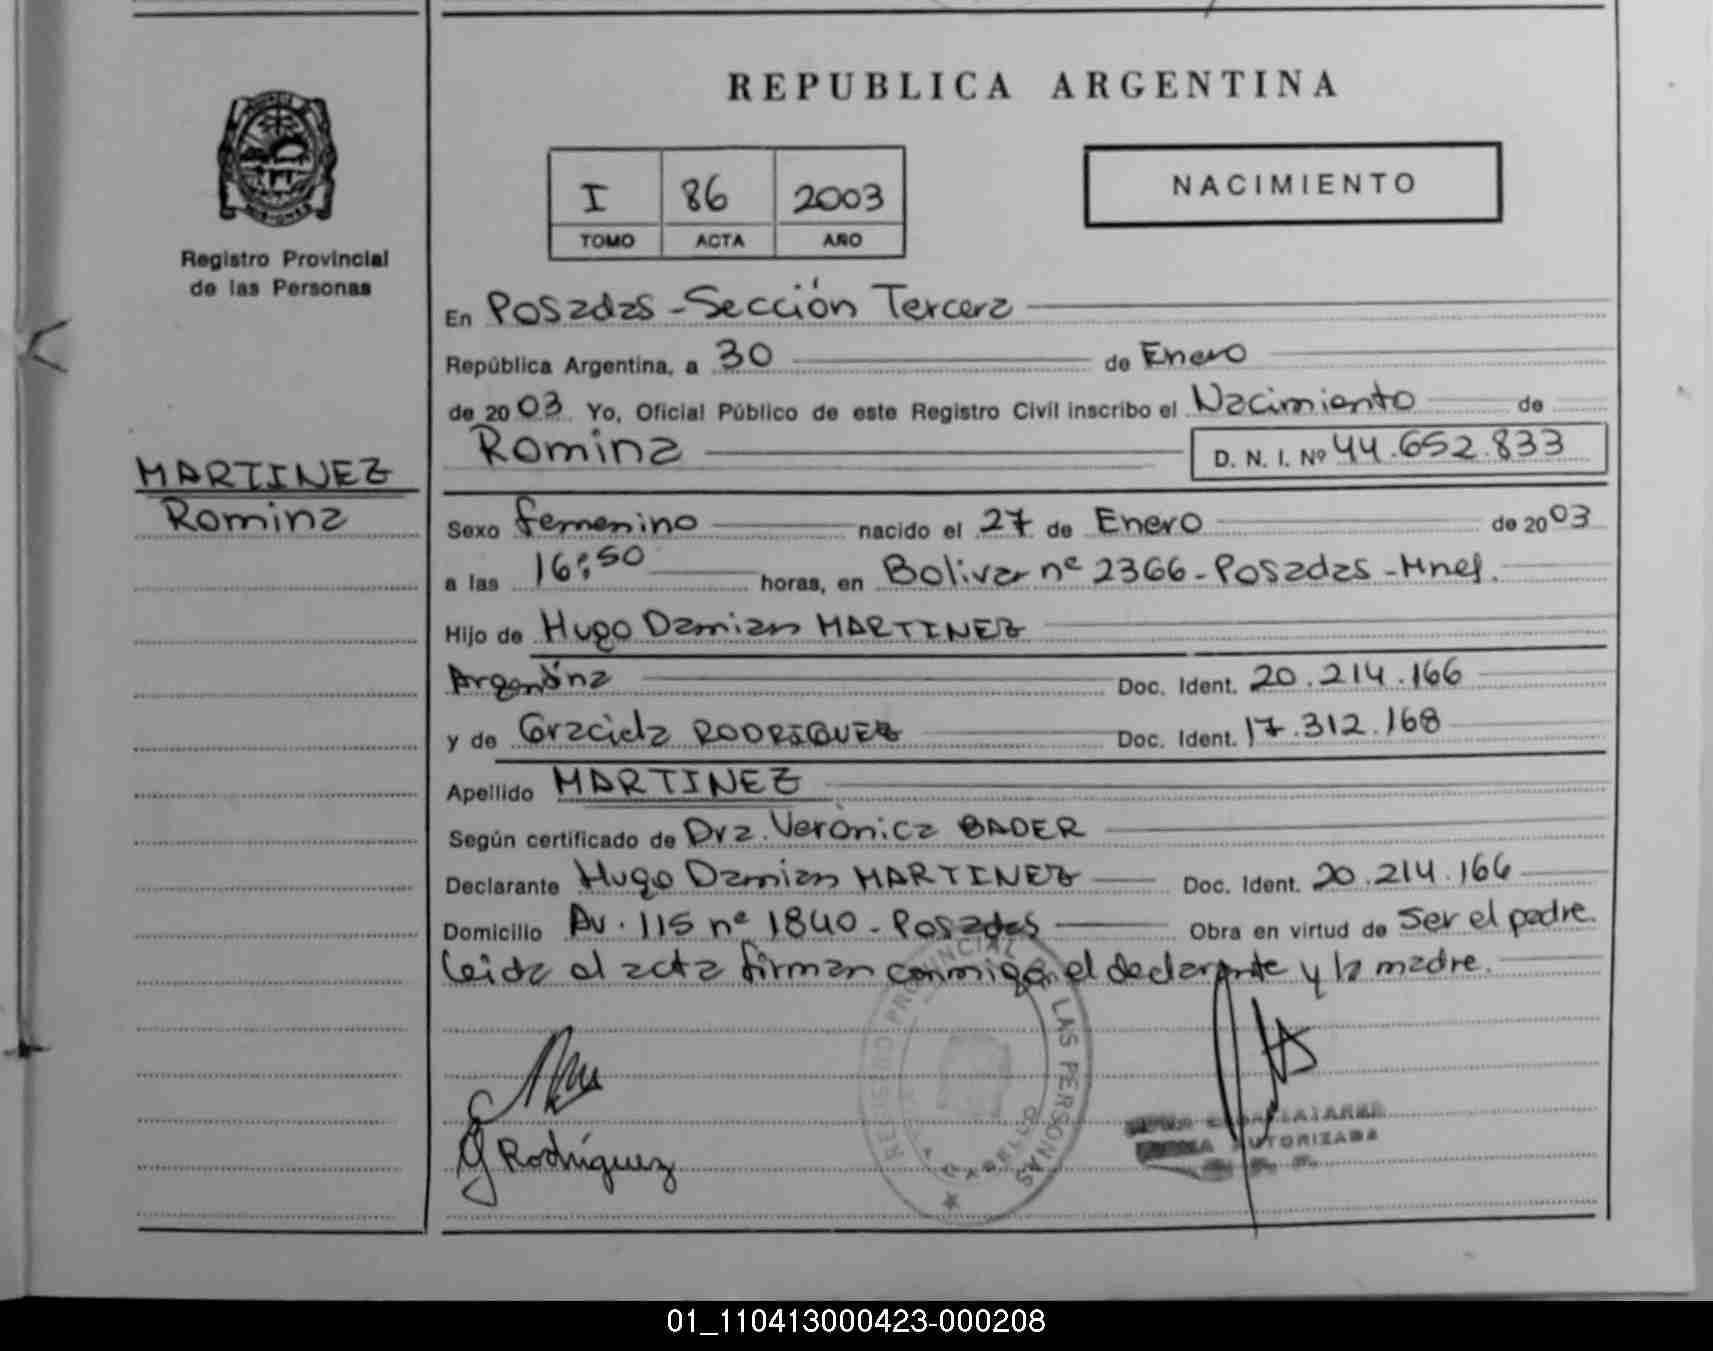 REPUBLICA ARGENTINA
I 86 2003
TOMO ACTA AÑO
NACIMIENTO
Registro Provincial
de las Personas
MARTINEZ
Romina
En Posadas - Sección Tercera
República Argentina, a 30 de Enero
de 2003. Yo, Oficial Público de este Registro Civil inscribo el Nacimiento de
Romina D. N. I. Nº 44.652.833
Sexo femenino nacido el 27 de Enero de 2003
a las 16:50 horas, en Bolivar nº 2366 - Posadas - Mnes.
Hijo de Hugo Damian MARTINEZ
Argentina Doc. Ident. 20.214.166
y de Graciela RODRIGUEZ Doc. Ident. 17.312.168
Apellido MARTINEZ
Según certificado de Dra. Verónica BADER
Declarante Hugo Damian MARTINEZ Doc. Ident. 20.214.166
Domicilio Av. 115 nº 1840 - Posadas Obra en virtud de ser el padre.
Leida el acta firman conmigo el declarante y la madre.
REGISTRO PROVINCIAL DE LAS PERSONAS
G Rodríguez
AUTORIZADA
01_110413000423-000208